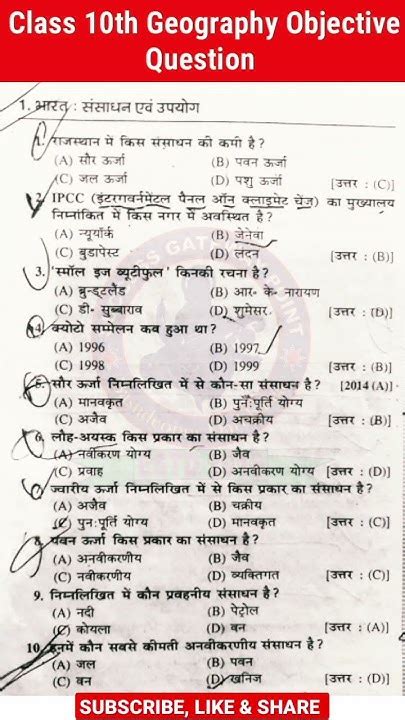 Class 10th Geography Objective
Question
1. भारत : संसाधन एवं उपयोग
1. राजस्थान में किस संसाधन की कमी है ?
(A) सौर ऊर्जा (B) पवन ऊर्जा
(C) जल ऊर्जा (D) पशु ऊर्जा [उत्तर : (C)]
2. IPCC (इंटरगवर्नमेंटल पैनल ऑन क्लाइमेट चेंज) का मुख्यालय
निम्नांकित में किस नगर में अवस्थित है ?
(A) न्यूयॉर्क (B) जेनेवा
(C) बुडापेस्ट (D) लंदन [उत्तर : (B)]
3. 'स्मॉल इज ब्यूटीफुल' किनकी रचना है ?
(A) ब्रुन्ड्टलैंड (B) आर॰ के॰ नारायण
(C) डी॰ सुब्बाराव (D) शुमेसर [उत्तर : (D)]
4. क्योटो सम्मेलन कब हुआ था ?
(A) 1996 (B) 1997
(C) 1998 (D) 1999 [उत्तर : (B)]
5. सौर ऊर्जा निम्नलिखित में से कौन-सा संसाधन है ? [2014 (A)]
(A) मानवकृत (B) पुनःपूर्ति योग्य
(C) अजैव (D) अचक्रीय [उत्तर : (B)]
6. लौह-अयस्क किस प्रकार का संसाधन है ?
(A) नवीकरण योग्य (B) जैव
(C) प्रवाह (D) अनवीकरण योग्य [उत्तर : (D)]
7. ज्वारीय ऊर्जा निम्नलिखित में से किस प्रकार का संसाधन है ?
(A) अजैव (B) चक्रीय
(C) पुनःपूर्ति योग्य (D) मानवकृत [उत्तर : (C)]
8. पवन ऊर्जा किस प्रकार का संसाधन है ?
(A) अनवीकरणीय (B) जैव
(C) नवीकरणीय (D) व्यक्तिगत [उत्तर : (C)]
9. निम्नलिखित में कौन प्रवहनीय संसाधन है ?
(A) नदी (B) पेट्रोल
(C) कोयला (D) वन [उत्तर : (A)]
10. इनमें कौन सबसे कीमती अनवीकरणीय संसाधन है ?
(A) जल (B) पवन
(C) वन (D) खनिज [उत्तर : (D)]
SUBSCRIBE, LIKE & SHARE